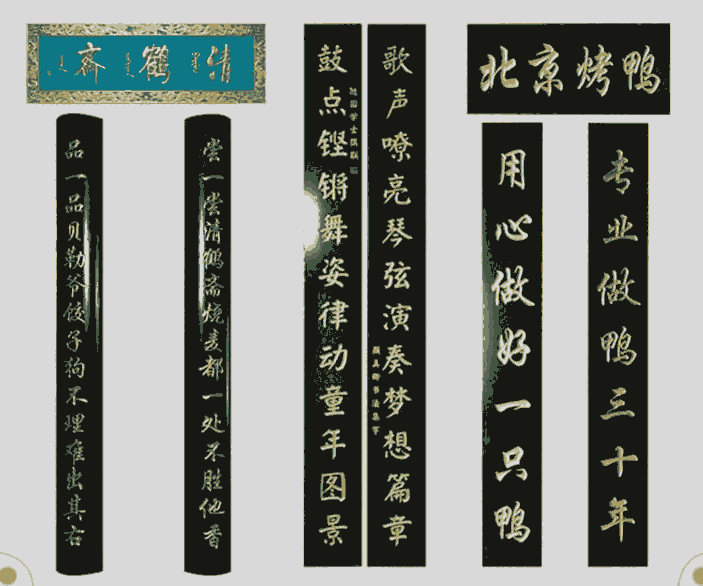 清鶴斋
尝一尝清鹤斋烧麦都一处不胜他香
品一品贝勒爷饺子狗不理难出其右
歌声嘹亮琴弦演奏梦想篇章
颜真卿书法集字
鼓点铿锵舞姿律动童年图景
北京烤鸭
专业做鸭三十年
用心做好一只鸭